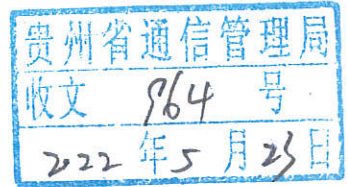 贵州省通信管理局
收文 964 号
2022 年 5 月 23 日